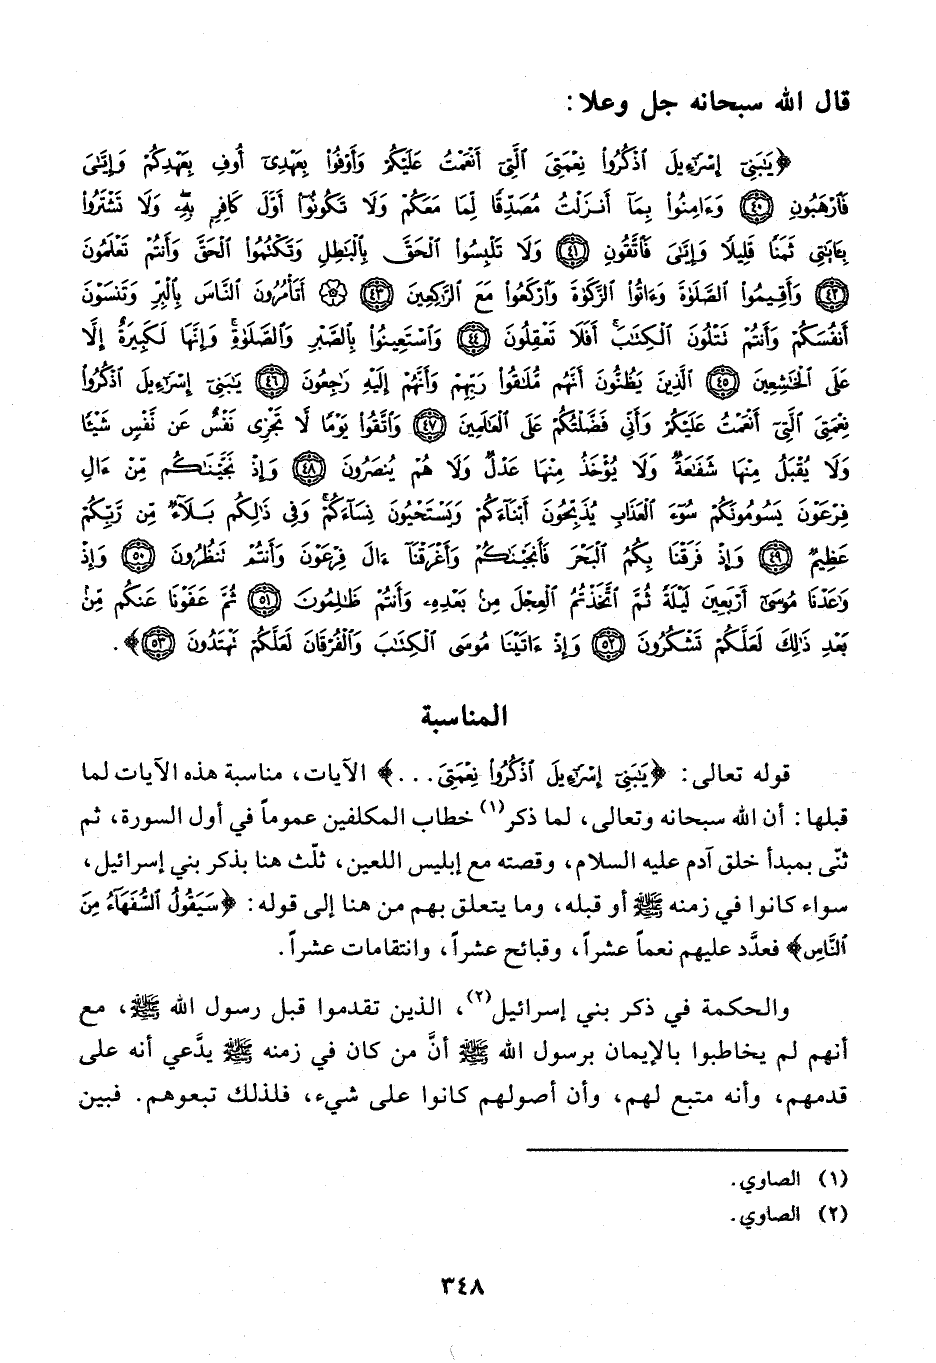 قال الله سبحانه جل وعلا:
﴿يَٰبَنِىٓ إِسْرَٰٓءِيلَ ٱذْكُرُوا۟ نِعْمَتِىَ ٱلَّتِىٓ أَنْعَمْتُ عَلَيْكُمْ وَأَوْفُوا۟ بِعَهْدِىٓ أُوفِ بِعَهْدِكُمْ وَإِيَّٰىَ
فَٱرْهَبُونِ ٤٠ وَءَامِنُوا۟ بِمَآ أَنزَلْتُ مُصَدِّقًا لِّمَا مَعَكُمْ وَلَا تَكُونُوٓا۟ أَوَّلَ كَافِرٍۭ بِهِۦ ۖ وَلَا تَشْتَرُوا۟
بِـَٔايَٰتِى ثَمَنًا قَلِيلًا وَإِيَّٰىَ فَٱتَّقُونِ ٤١ وَلَا تَلْبِسُوا۟ ٱلْحَقَّ بِٱلْبَٰطِلِ وَتَكْتُمُوا۟ ٱلْحَقَّ وَأَنتُمْ تَعْلَمُونَ
٤٢ وَأَقِيمُوا۟ ٱلصَّلَوٰةَ وَءَاتُوا۟ ٱلزَّكَوٰةَ وَٱرْكَعُوا۟ مَعَ ٱلرَّٰكِعِينَ ٤٣ ۞ أَتَأْمُرُونَ ٱلنَّاسَ بِٱلْبِرِّ وَتَنسَوْنَ
أَنفُسَكُمْ وَأَنتُمْ تَتْلُونَ ٱلْكِتَٰبَ ۚ أَفَلَا تَعْقِلُونَ ٤٤ وَٱسْتَعِينُوا۟ بِٱلصَّبْرِ وَٱلصَّلَوٰةِ ۚ وَإِنَّهَا لَكَبِيرَةٌ إِلَّا
عَلَى ٱلْخَٰشِعِينَ ٤٥ ٱلَّذِينَ يَظُنُّونَ أَنَّهُم مُّلَٰقُوا۟ رَبِّهِمْ وَأَنَّهُمْ إِلَيْهِ رَٰجِعُونَ ٤٦ يَٰبَنِىٓ إِسْرَٰٓءِيلَ ٱذْكُرُوا۟
نِعْمَتِىَ ٱلَّتِىٓ أَنْعَمْتُ عَلَيْكُمْ وَأَنِّى فَضَّلْتُكُمْ عَلَى ٱلْعَٰلَمِينَ ٤٧ وَٱتَّقُوا۟ يَوْمًا لَّا تَجْزِى نَفْسٌ عَن نَّفْسٍ شَيْـًٔا
وَلَا يُقْبَلُ مِنْهَا شَفَٰعَةٌ وَلَا يُؤْخَذُ مِنْهَا عَدْلٌ وَلَا هُمْ يُنصَرُونَ ٤٨ وَإِذْ نَجَّيْنَٰكُم مِّنْ ءَالِ
فِرْعَوْنَ يَسُومُونَكُمْ سُوٓءَ ٱلْعَذَابِ يُذَبِّحُونَ أَبْنَآءَكُمْ وَيَسْتَحْيُونَ نِسَآءَكُمْ ۚ وَفِى ذَٰلِكُم بَلَآءٌ مِّن رَّبِّكُمْ
عَظِيمٌ ٤٩ وَإِذْ فَرَقْنَا بِكُمُ ٱلْبَحْرَ فَأَنجَيْنَٰكُمْ وَأَغْرَقْنَآ ءَالَ فِرْعَوْنَ وَأَنتُمْ تَنظُرُونَ ٥٠ وَإِذْ
وَٰعَدْنَا مُوسَىٰٓ أَرْبَعِينَ لَيْلَةً ثُمَّ ٱتَّخَذْتُمُ ٱلْعِجْلَ مِنۢ بَعْدِهِۦ وَأَنتُمْ ظَٰلِمُونَ ٥١ ثُمَّ عَفَوْنَا عَنكُم مِّنۢ
بَعْدِ ذَٰلِكَ لَعَلَّكُمْ تَشْكُرُونَ ٥٢ وَإِذْ ءَاتَيْنَا مُوسَى ٱلْكِتَٰبَ وَٱلْفُرْقَانَ لَعَلَّكُمْ تَهْتَدُونَ ٥٣﴾.
المناسبة
قوله تعالى: ﴿يَٰبَنِىٓ إِسْرَٰٓءِيلَ ٱذْكُرُوا۟ نِعْمَتِىَ...﴾ الآيات، مناسبة هذه الآيات لما
قبلها: أن الله سبحانه وتعالى، لما ذكر(١) خطاب المكلفين عموماً في أول السورة، ثم
ثنّى بمبدأ خلق آدم عليه السلام، وقصته مع إبليس اللعين، ثلّث هنا بذكر بني إسرائيل،
سواء كانوا في زمنه ﷺ أو قبله، وما يتعلق بهم من هنا إلى قوله: ﴿سَيَقُولُ ٱلسُّفَهَآءُ مِنَ
ٱلنَّاسِ﴾ فعدَّد عليهم نعماً عشراً، وقبائح عشراً، وانتقامات عشراً.
والحكمة في ذكر بني إسرائيل(٢)، الذين تقدموا قبل رسول الله ﷺ، مع
أنهم لم يخاطبوا بالإيمان برسول الله ﷺ أنَّ من كان في زمنه ﷺ يدَّعي أنه على
قدمهم، وأنه متبع لهم، وأن أصولهم كانوا على شيء، فلذلك تبعوهم. فبين
(١) الصاوي.
(٢) الصاوي.
٣٤٨